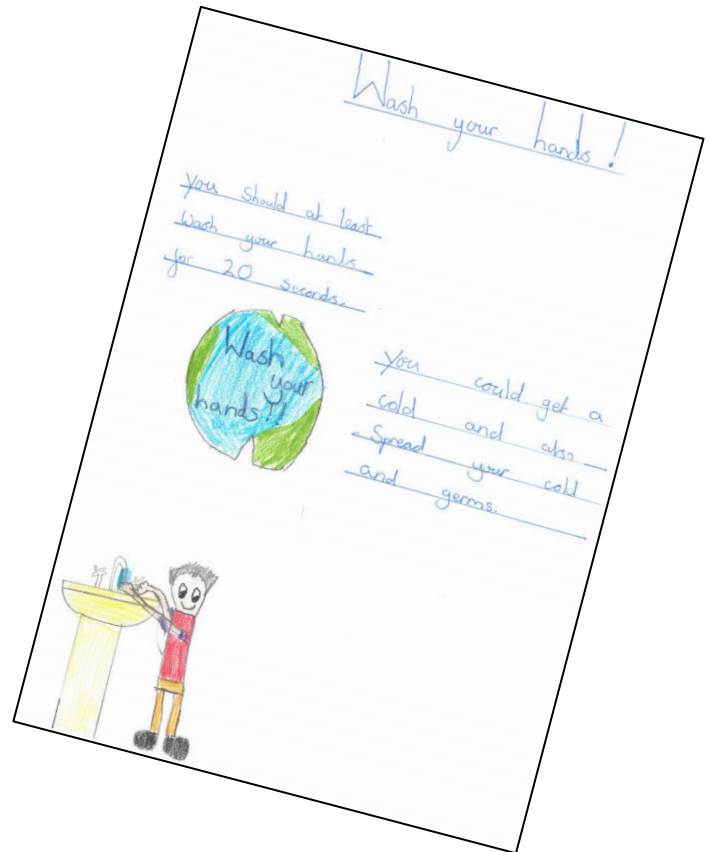 Wash your hands!
You should at least
Wash your hands
for 20 seconds.
Wash
your
hands!!
You could get a
cold and also
Spread your cold
and germs.